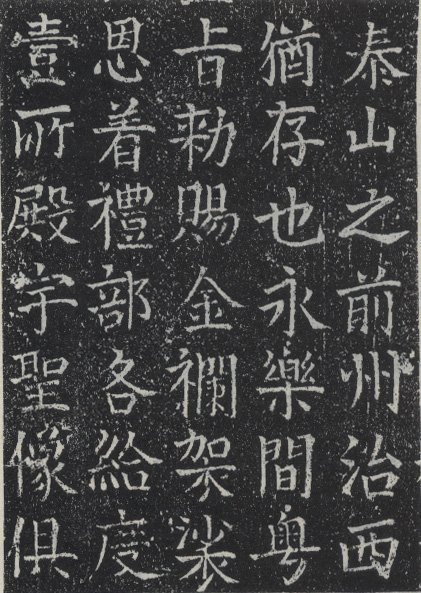 泰山之前州治西
猶存也永樂間粤
㫖勅賜金襴架裟
思着禮部各給度
壹所殿宇聖像俱